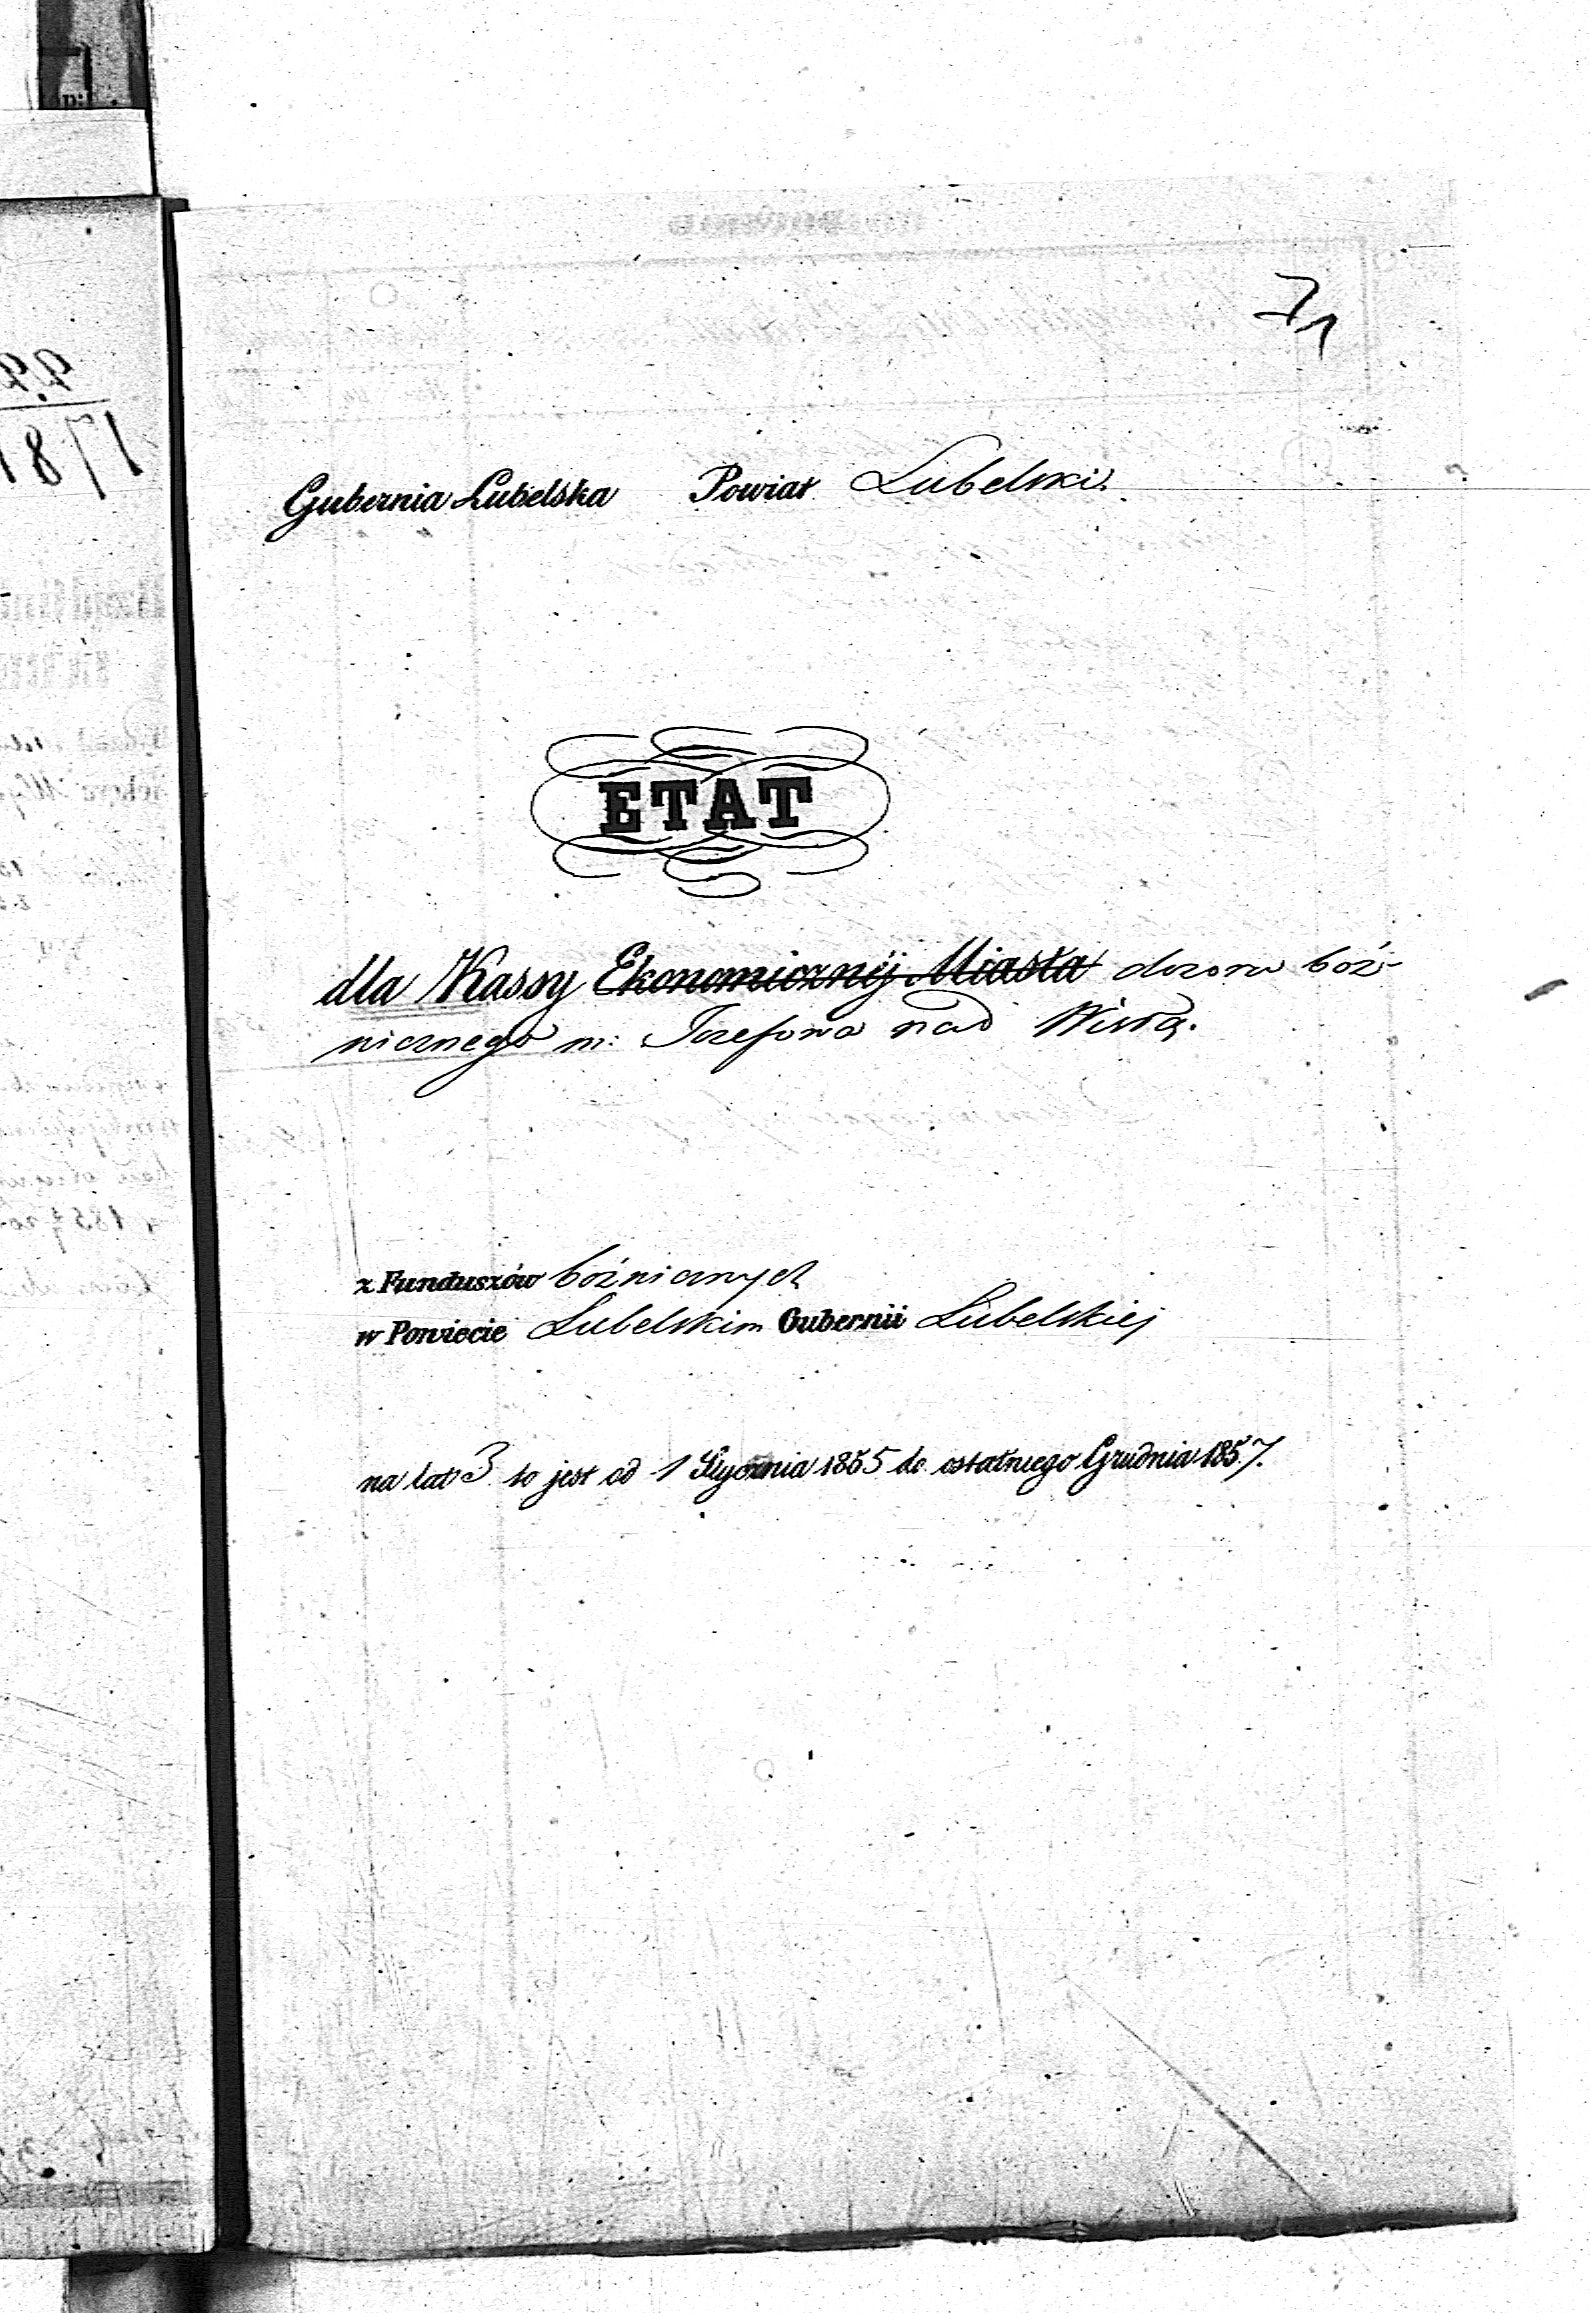 71
Gubernia Lubelska Powiat Lubelski.
ETAT
dla Kassy Ekonomicznéj Miasta dozoru bóź-
nicznego m: Jozefowa nad Wisłą.
z Funduszów bóźnicznych
w Powiecie Lubelskim Gubernii Lubelskiej
na lat 3 to jest od 1 Stycznia 1855 do ostatniego Grudnia 1857.